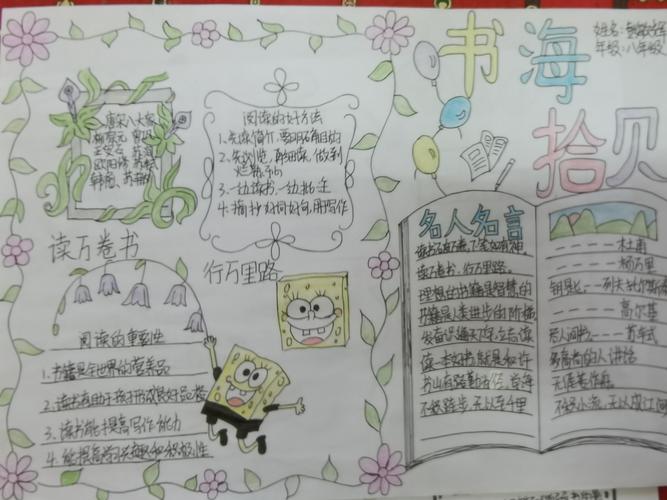 书海
拾贝
姓名:
年级:八年级
唐宋八大家
柳宗元 曾巩
王安石 苏洵
欧阳修 苏轼
韩愈、苏辙
阅读的好方法
1、先读简介,要明确目的
2、先浏览,再细读,做到
烂熟于心
3、一边读书,一边批注
4、摘抄好词好句,用写作
读万卷书
行万里路
阅读的重要性
1、书籍是全世界的营养品
2、读书有助于孩形成良好品格
3、读书能提高写作能力
4、能提高学习兴趣和积极性
名人名言
读书破万卷,下笔如有神。
读万卷书,行万里路。
理想的书籍是智慧的
书籍是人类进步的阶梯
发奋识遍天下字,立志读
读一本好书,就是和许
书山有路勤为径,学海
不积跬步,无以至千里
－－－－－杜甫
－－－－－杨万里
钥匙——列夫托尔斯泰
－－－－高尔基
尽人间书。——苏轼
多高尚的人讲话
无涯苦作舟
不积小流,无以成江河